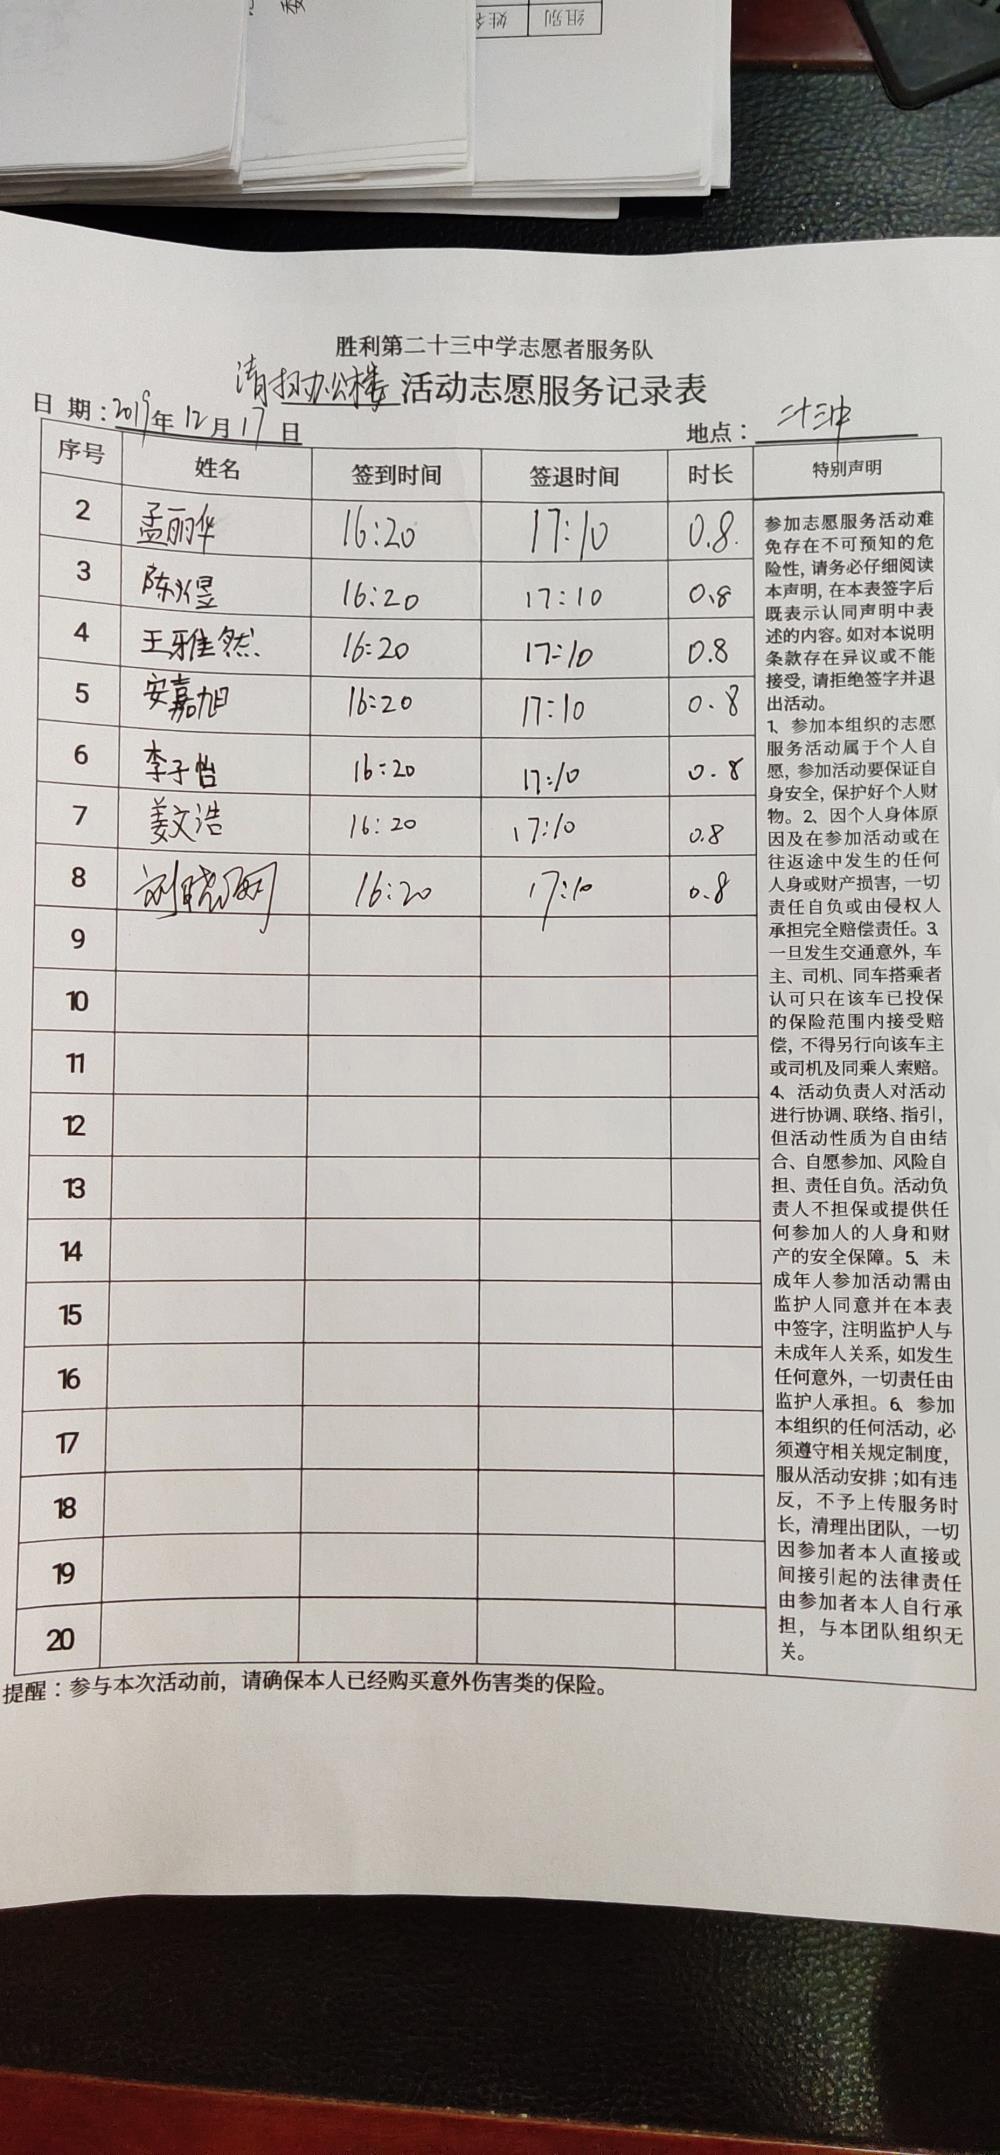 组别 姓名
胜利第二十三中学志愿者服务队
清扫办公楼 活动志愿服务记录表
日 期：2019年12月17日 地点：二十三中
序号 姓名 签到时间 签退时间 时长 特别声明
2 孟丽华 16:20 17:10 0.8.
3 陈火昱 16:20 17:10 0.8
4 王雅然 16:20 17:10 0.8
5 安嘉旭 16:20 17:10 0.8
6 李子怡 16:20 17:10 0.8
7 姜文浩 16:20 17:10 0.8
8 刘晓 16:20 17:10 0.8
9
10
11
12
13
14
15
16
17
18
19
20
参加志愿服务活动难
免存在不可预知的危
险性, 请务必仔细阅读
本声明, 在本表签字后
既表示认同声明中表
述的内容。如对本说明
条款存在异议或不能
接受, 请拒绝签字并退
出活动。
1、参加本组织的志愿
服务活动属于个人自
愿, 参加活动要保证自
身安全, 保护好个人财
物。2、因个人身体原
因及在参加活动或在
往返途中发生的任何
人身或财产损害, 一切
责任自负或由侵权人
承担完全赔偿责任。3、
一旦发生交通意外, 车
主、司机、同车搭乘者
认可只在该车已投保
的保险范围内接受赔
偿, 不得另行向该车主
或司机及同乘人索赔。
4、活动负责人对活动
进行协调、联络、指引,
但活动性质为自由结
合、自愿参加、风险自
担、责任自负。活动负
责人不担保或提供任
何参加人的人身和财
产的安全保障。5、未
成年人参加活动需由
监护人同意并在本表
中签字, 注明监护人与
未成年人关系, 如发生
任何意外, 一切责任由
监护人承担。6、参加
本组织的任何活动, 必
须遵守相关规定制度,
服从活动安排；如有违
反, 不予上传服务时
长, 清理出团队, 一切
因参加者本人直接或
间接引起的法律责任
由参加者本人自行承
担, 与本团队组织无
关。
提醒：参与本次活动前，请确保本人已经购买意外伤害类的保险。